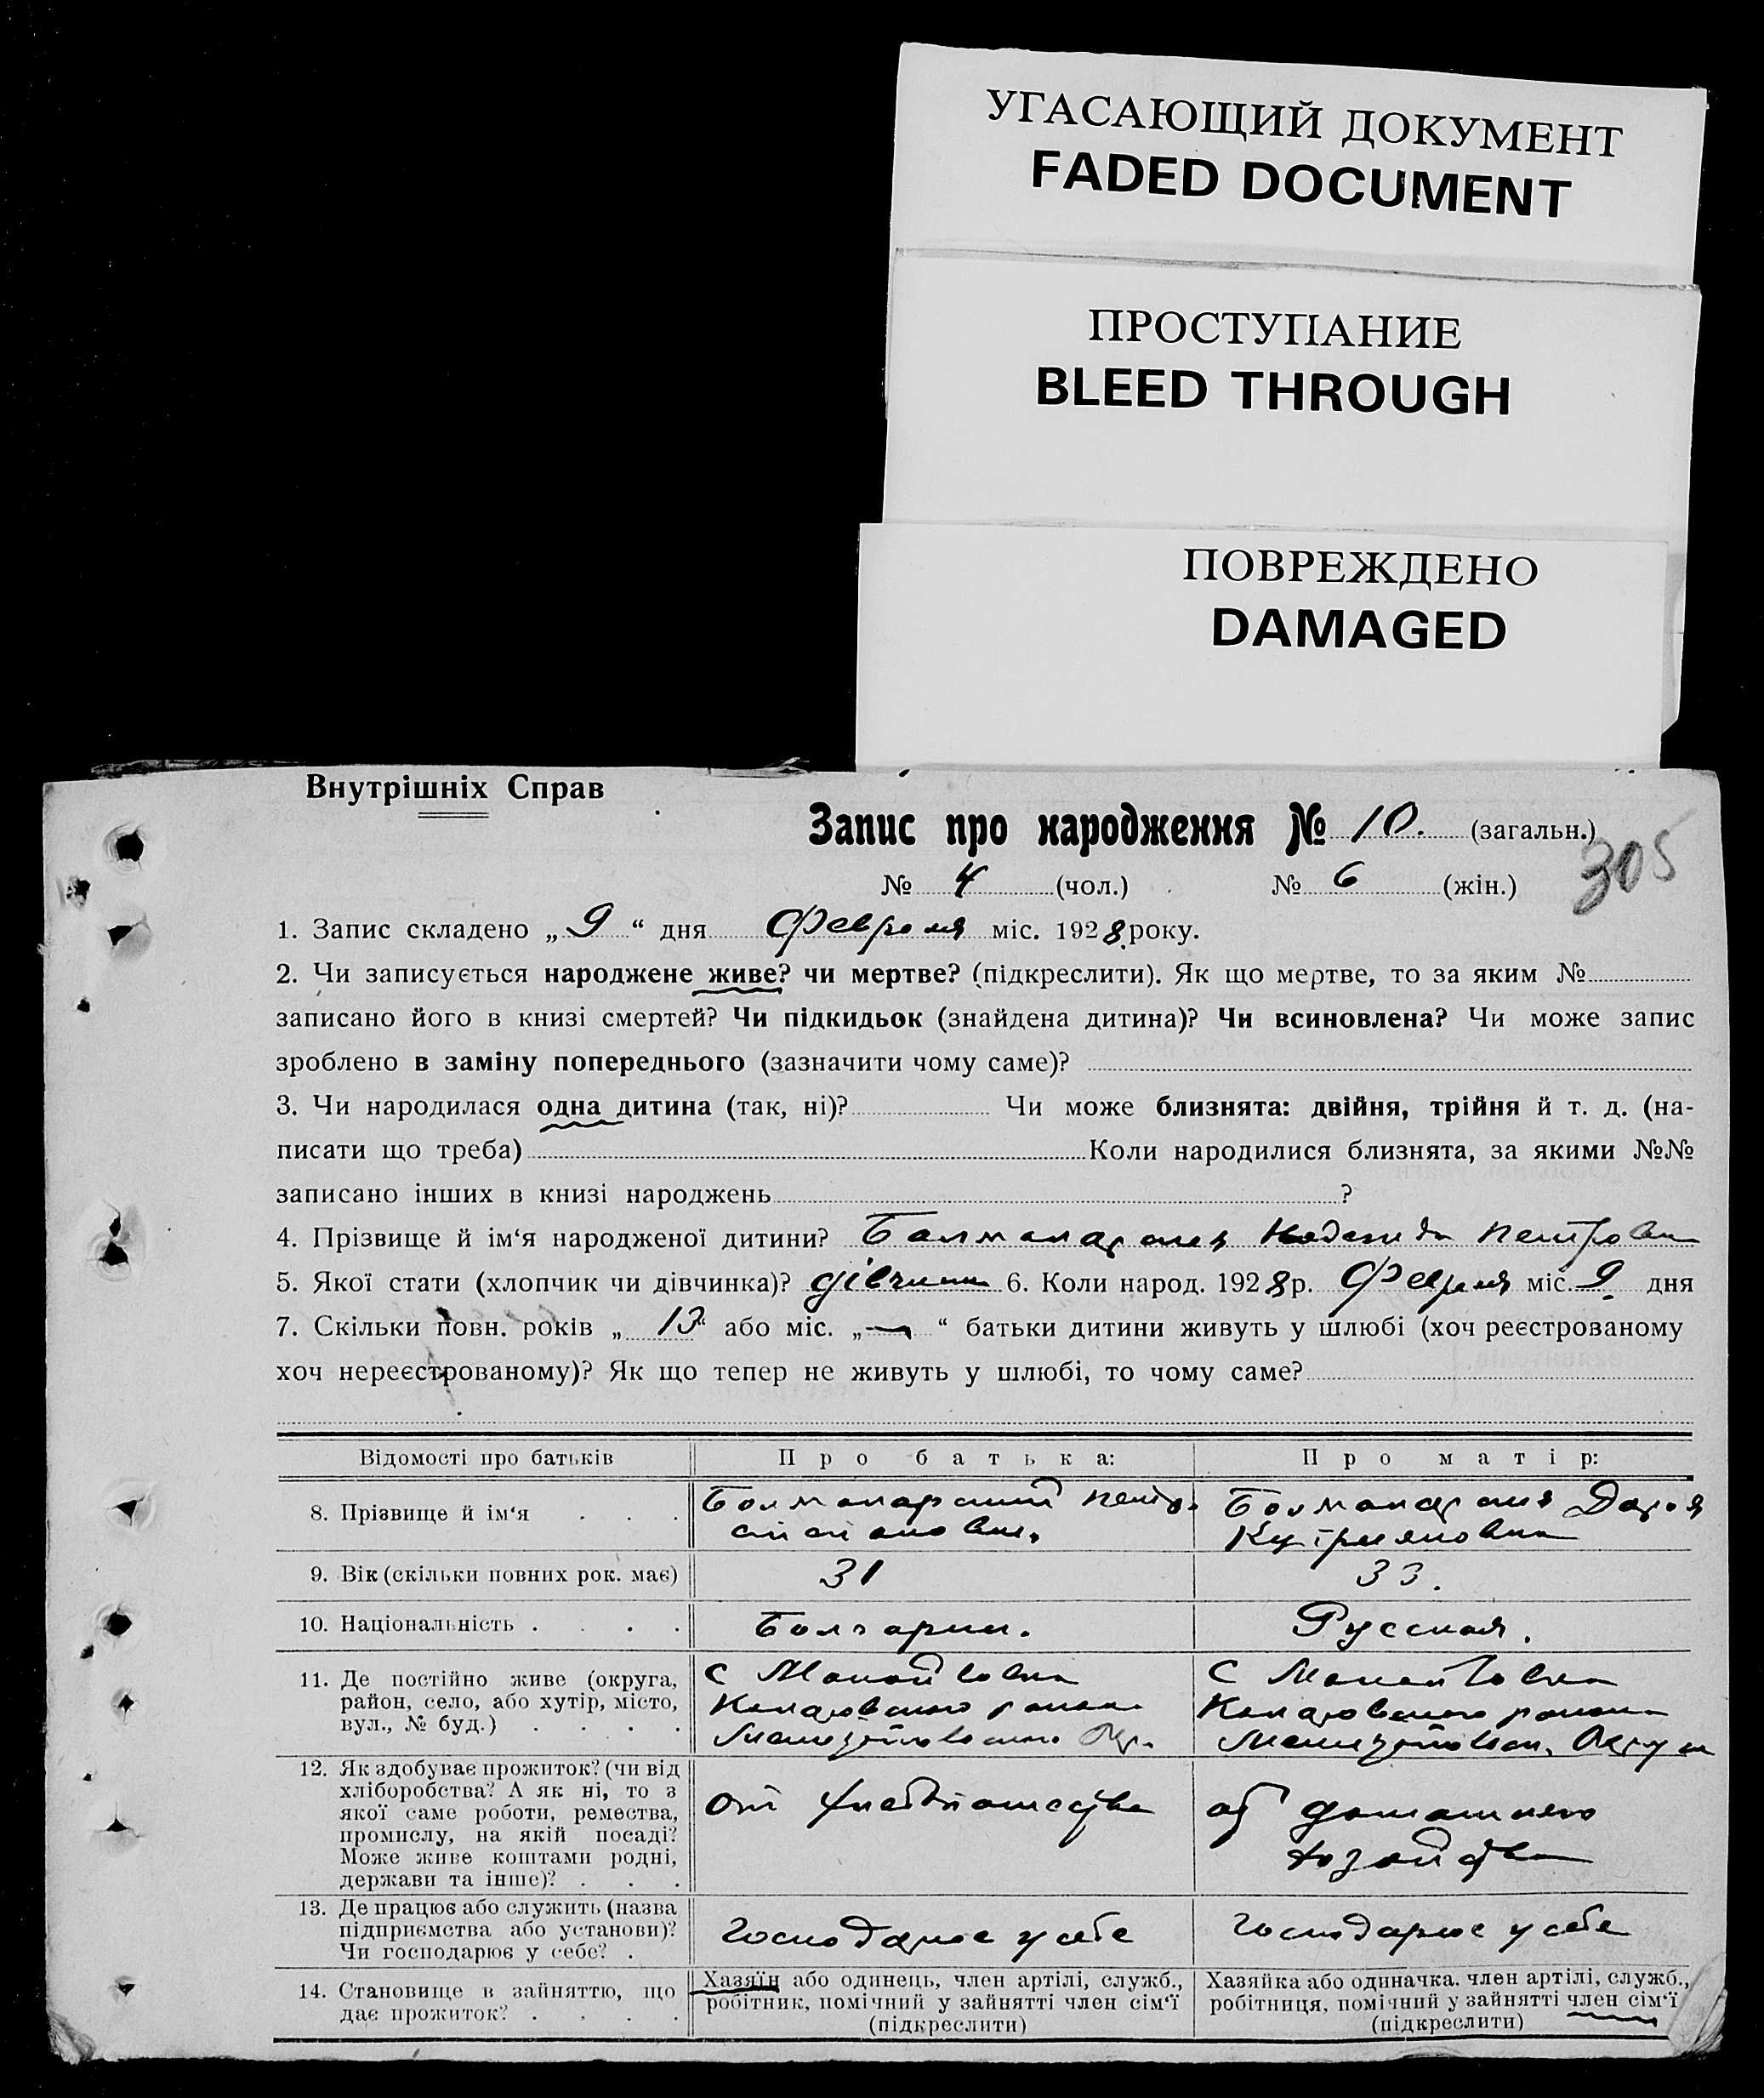 УГАСАЮЩИЙ ДОКУМЕНТ
FADED DOCUMENT
ПРОСТУПАНИЕ
BLEED THROUGH
ПОВРЕЖДЕНО
DAMAGED
Внутрішніх Справ
Запис про народження № 10. (загальн.)
305
№ 4 (чол.) № 6 (жін.)
1. Запис складено „ 9 “ дня Февраля міс. 1928 року.
2. Чи записується народжене живе? чи мертве? (підкреслити). Як що мертве, то за яким №
записано його в книзі смертей? Чи підкидьок (знайдена дитина)? Чи всиновлена? Чи може запис
зроблено в заміну попереднього (зазначити чому саме)?
3. Чи народилася одна дитина (так, ні)? Чи може близнята: двійня, трійня й т. д. (на-
писати що треба) Коли народилися близнята, за якими №№
записано інших в книзі народжень ?
4. Прізвище й ім‘я народженої дитини? Надежда Петровна
5. Якої стати (хлопчик чи дівчинка)? дівчина 6. Коли народ. 1928 р. Февраля міс. 9. дня
7. Скільки повн. років „ 13 “ або міс. „ — “ батьки дитини живуть у шлюбі (хоч реєстрованому
хоч нереєстрованому)? Як що тепер не живуть у шлюбі, то чому саме?
Відомості про батьків Про батька: Про матір:
8. Прізвище й ім‘я . . . Дарья
9. Вік (скільки повних рок. має) 31 33.
10. Національність . . . . Болгарин. Русская.
11. Де постійно живе (округа,
район, село, або хутір, місто,
вул., № буд.) . . . .
С
района
Мелитопольского Окр.
С
района
Мелитопольск. Округи
12. Як здобуває прожиток? (чи від
хліборобства? А як ні, то з
якої саме роботи, ремества,
промислу, на якій посаді?
Може живе коштами родні,
держави та інше)? . . .
От хлебопашества
от домашнего
хозяйства
13. Де працює або служить (назва
підприємства або установи)?
Чи господарює у себе? .
Господарює у себе
Господарює у себе
14. Становище в зайняттю, що
дає прожиток? . . . .
Хазяїн або одинець, член артілі, служб.,
робітник, помічний у зайнятті член сім‘ї
(підкреслити)
Хазяйка або одиначка. член артілі, служб.,
робітниця, помічний у зайнятті член сім‘ї
(підкреслити)